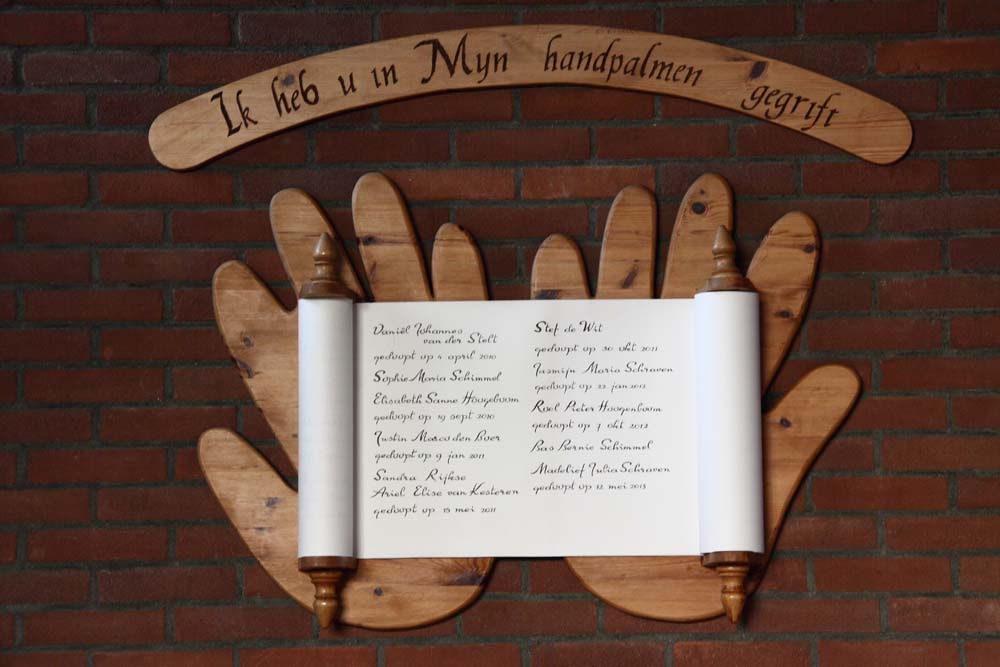 Ik heb u in Myn handpalmen gegrift
Daniël Johannes
van der Stelt
gedoopt op 4 april 2010
Sophie Maria Schimmel
Elisabeth Sanne Hoogeboom
gedoopt op 19 sept 2010
Justin Marco den Boer
gedoopt op 9 jan 2011
Sandra Rijkse
Ariel Elise van Kesteren
gedoopt op 15 mei 2011
Stef de Wit
gedoopt op 30 okt 2011
Jasmijn Maria Schraven
gedoopt op 22 jan 2012
Roel Pieter Hoogenboom
gedoopt op 7 okt 2012
Bas Bernie Schimmel
Madelief Julia Schraven
gedoopt op 12 mei 2013